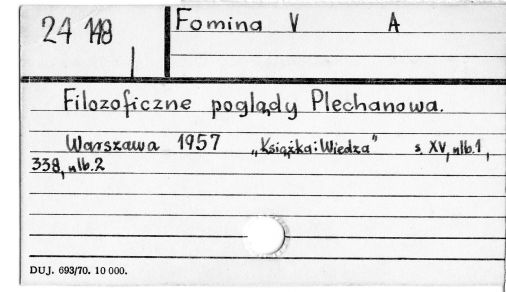 24 148
Fomina V A
Filozoficzne poglądy Plechanowa.
Warszawa 1957 „Książka i Wiedza" s. XV, nlb. 1,
338, nlb. 2
DUJ. 693/70. 10 000.